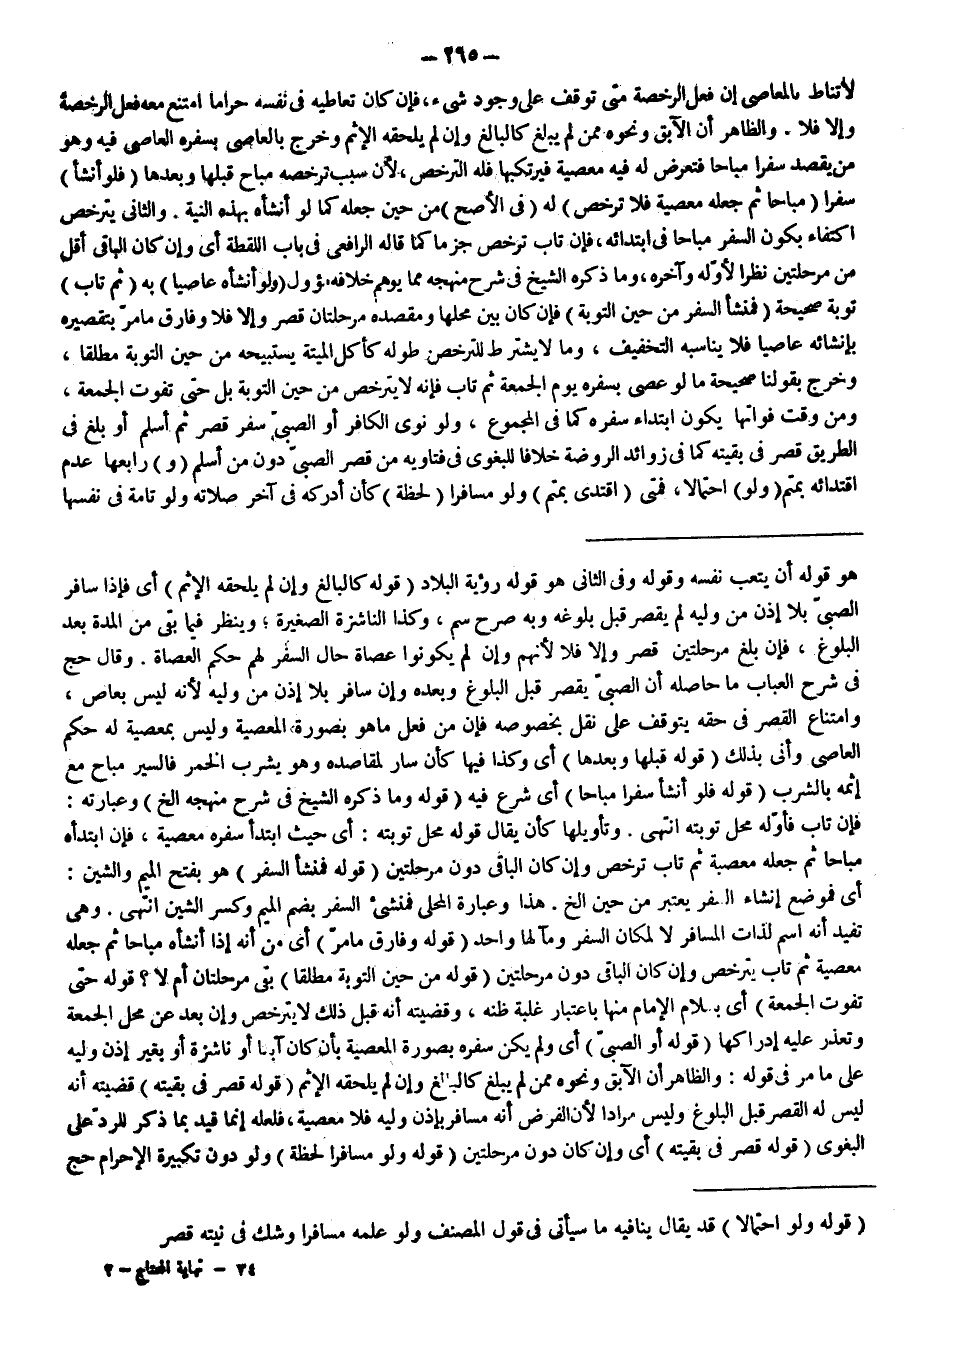 – ٢٦٥ –
لأتناط بالمعاصى إن فعل الرخصة متى توقف على وجود شىء، فإن كان تعاطيه فى نفسه حراما امتنع معه فعل الرخصة
وإلا فلا . والظاهر أن الآبق ونحوه ممن لم يبلغ كالبالغ وإن لم يلحقه الإثم وخرج بالعاصى بسفره العاصى فيه وهو
من يقصد سفرا مباحا فتعرض له فيه معصية فيرتكبها فله الترخص، لأن سبب ترخصه مباح قبلها وبعدها ( فلو أنشأ )
سفرا ( مباحا ثم جعله معصية فلا ترخص ) له ( فى الأصح ) من حين جعله كما لو أنشأه بهذه النية . والثانى يترخص
اكتفاء بكون السفر مباحا فى ابتدائه، فإن تاب ترخص جزما كما قاله الرافعى فى باب اللقطة أى وإن كان الباقى أقل
من مرحلتين نظرا لأوّله وآخره، وما ذكره الشيخ فى شرح منهجه مما يوهم خلافه مؤول ( ولو أنشأه عاصيا ) به ( ثم تاب )
توبة صحيحة ( فمنشأ السفر من حين التوبة ) فإن كان بين محلها ومقصده مرحلتان قصر وإلا فلا وفارق مامرّ بتقصيره
بإنشائه عاصيا فلا يناسبه التخفيف ، وما لا يشترط للترخص طوله كأكل الميتة يستبيحه من حين التوبة مطلقا ،
وخرج بقولنا صحيحة ما لو عصى بسفره يوم الجمعة ثم تاب فإنه لا يترخص من حين التوبة بل حتى تفوت الجمعة ،
ومن وقت فواتها يكون ابتداء سفره كما فى المجموع ، ولو نوى الكافر أو الصبىّ سفر قصر ثم أسلم أو بلغ فى
الطريق قصر فى بقيته كما فى زوائد الروضة خلافا للبغوى فى فتاويه من قصر الصبىّ دون من أسلم ( و ) رابعها عدم
اقتدائه بمتم ( ولو ) احتمالا، فمتى ( اقتدى بمتم ) ولو مسافرا ( لحظة ) كأن أدركه فى آخر صلاته ولو تامة فى نفسها
هو قوله أن يتعب نفسه وقوله وفى الثانى هو قوله رؤية البلاد ( قوله كالبالغ وإن لم يلحقه الإثم ) أى فإذا سافر
الصبىّ بلا إذن من وليه لم يقصر قبل بلوغه وبه صرح سم ، وكذا الناشزة الصغيرة ؛ وينظر فيما بقى من المدة بعد
البلوغ ، فإن بلغ مرحلتين قصر وإلا فلا لأنهم وإن لم يكونوا عصاة حال السفر لهم حكم العصاة . وقال حج
فى شرح العباب ما حاصله أن الصبىّ يقصر قبل البلوغ وبعده وإن سافر بلا إذن من وليه لأنه ليس بعاص ،
وامتناع القصر فى حقه يتوقف على نقل بخصوصه فإن من فعل ماهو بصورة المعصية وليس بمعصية له حكم
العاصى وأنى بذلك ( قوله قبلها وبعدها ) أى وكذا فيها كأن سار لمقاصده وهو يشرب الخمر فالسير مباح مع
إثمه بالشرب ( قوله فلو أنشأ سفرا مباحا ) أى شرع فيه ( قوله وما ذكره الشيخ فى شرح منهجه الخ ) وعبارته :
فإن تاب فأوّله محل توبته انتهى . وتأويلها كأن يقال قوله محل توبته : أى حيث ابتدأ سفره معصية ، فإن ابتدأه
مباحا ثم جعله معصية ثم تاب ترخص وإن كان الباقى دون مرحلتين ( قوله فمنشأ السفر ) هو بفتح الميم والشين :
أى فموضع إنشاء السفر يعتبر من حين الخ . هذا وعبارة المحلى فمنشئ السفر بضم الميم وكسر الشين انتهى . وهى
تفيد أنه اسم لذات المسافر لا لمكان السفر ومآلها واحد ( قوله وفارق مامرّ ) أى من أنه إذا أنشأه مباحا ثم جعله
معصية ثم تاب يترخص وإن كان الباقى دون مرحلتين ( قوله من حين التوبة مطلقا ) بقى مرحلتان أم لا ؟ قوله حتى
تفوت الجمعة ) أى بسلام الإمام منها باعتبار غلبة ظنه ، وقضيته أنه قبل ذلك لا يترخص وإن بعد عن محل الجمعة
وتعذر عليه إدراكها ( قوله أو الصبىّ ) أى ولم يكن سفره بصورة المعصية بأن كان آبقا أو ناشزة أو بغير إذن وليه
على ما مر فى قوله : والظاهر أن الآبق ونحوه ممن لم يبلغ كالبالغ وإن لم يلحقه الإثم ( قوله قصر فى بقيته ) قضيته أنه
ليس له القصر قبل البلوغ وليس مرادا لأن الفرض أنه مسافر بإذن وليه فلا معصية، فلعله إنما قيد بما ذكر للردّ على
البغوى ( قوله قصر فى بقيته ) أى وإن كان دون مرحلتين ( قوله ولو مسافرا لحظة ) ولو دون تكبيرة الإحرام حج
( قوله ولو احتمالا ) قد يقال ينافيه ما سيأتى فى قول المصنف ولو علمه مسافرا وشك فى نيته قصر
٣٤ – نهاية المحتاج – ٢